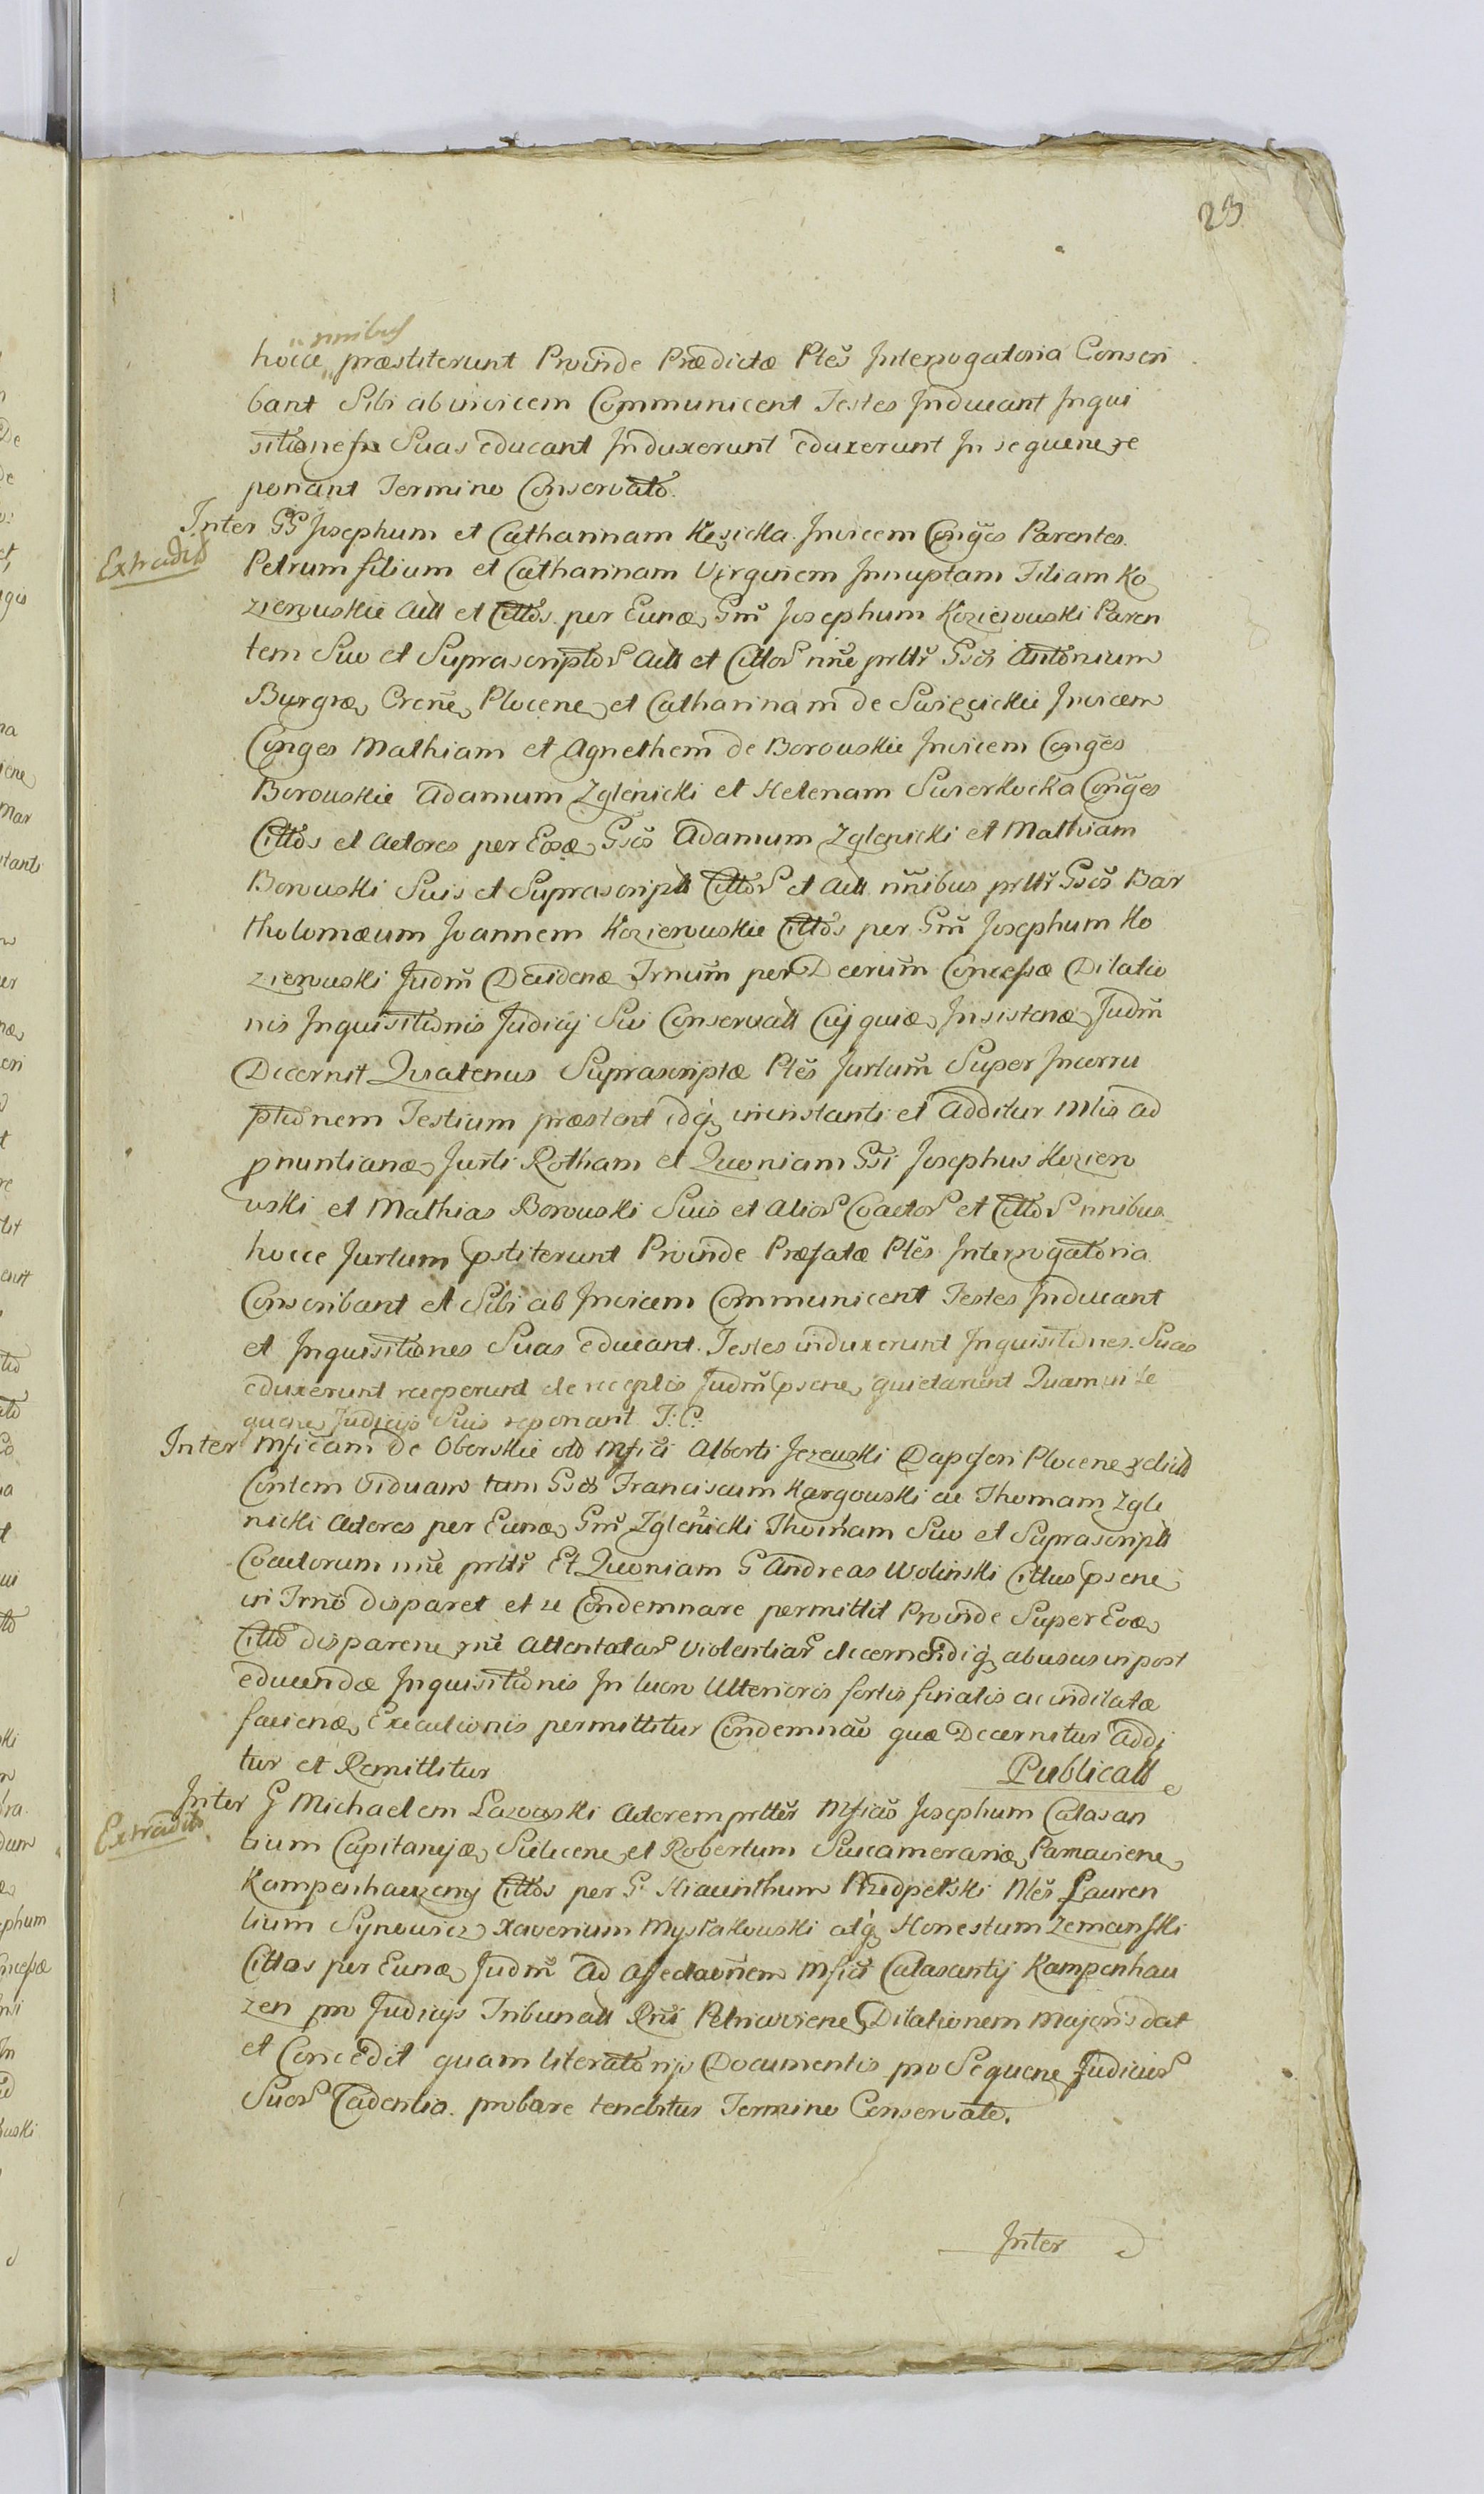 23
nnibus
hocce præstiterunt Proinde Prædictæ Ptes Interrogatoria Conscri
bant Sibi abinvicem Communicent Testes Inducant Inqui
sitiones Suas educant Induxerunt eduxerunt In sequen re
ponant Termino Conservato.
Inter GG Josephum et Catharinam Kęzicka Invicem Conges Parentes
Extradit
Petrum filium et Catharinam Virginem Innuptam Filiam Ko
zierowskie Act et Cittos per Eund Gnm Josephum Kozierowski Paren
tem Suo et Suprascriptor Act et Cittor nne prttr Gsos Antonium
Burgra Crcne Plocen et Catharinam de Swięcickie Invicem
Conges Mathiam et Agnethem de Borowskie Invicem Conges
Borowskie Adamum Zglenicki et Helenam Swierkocka Conges
Cittos et Actores per Eosd Gsos Adamum Zglenicki et Mathiam
Borowski Suis et Suprascript Cittor et Act nnibus prttr Gsos Bar
tholomæum Joannem Kozierowskie Cittos per Gnm Josephum Ko
zierowski Judm Decidend Trnum per Decrum Concessæ Dilatio
nis Inquisitionis Judicij Sui Conservatt Cuj quid Insistend Judm
Decernit Quatenus Suprascriptæ Ptes Jurtum Super Incorru
ptionem Testium præstent idq in instanti et Additur Mtis ad
pnuntiand Jurti Rotham et Quoniam Gsi Josephus Koziero
wski et Mathias Borowski Suis et Alior Coactor et Cittor nnibus
hocce Jurtum pstiterunt Proinde Præfatæ Ptes Interrogatoria
Conscribant et Sibi ab Invicem Communicent Testes Inducant
et Inquisitiones Suas educant. Testes induxerunt Inquisitiones Suas
eduxerunt receperunt de receptis Judm psens quietarunt Quam in Se
quen Judicijs Suis reponant T: C:
Inter Mficam de Oborskie old Mfici Alberti Jezewski Dapiferi Plocen relict
Contem Viduam tum Gsos Franciscum Kargowski ac Thomam Zgle
nicki Actores per Eund Gnm Zglenicki Thomam Suo et Suprascript
Coactorum nne prttr Et Quoniam G Andreas Wolinski Cittus psens
in Trno disparet et se Condemnare permittit Proinde Super Eod
Citto disparen rne Attentatar Violentiar decernendiq abusus in post
educendæ Inquisitionis In lucro Ulterioris fortis finalis ac indilatæ
faciend Executionis permittitur Condemnao quæ Decernitur Addi
tur et Remittitur
Publicatt
Inter G Michaelem Lasowski Actorem prtter Mficos Josephum Calasan
Extradit
tium Capitanej Sielecen et Robertum Succamerarid Parnavien
Kampenhauzeny Cittos per G Hiacinthum Przedpełski Nles Lauren
tium Synowicz Xaverium Mystakowski atq Honestum Zemanski
Cittos per Eund Judm Ad Affectaonem Mfici Calasantij Kampenhau
zen pro Judicijs Tribunatt Rni Petricovien Dilationem Majoris dat
et Concedit quam literatorijs Documentis pro Sequen Judicior
Suor Cadentia probare tenebitur Termino Conservato.
Inter